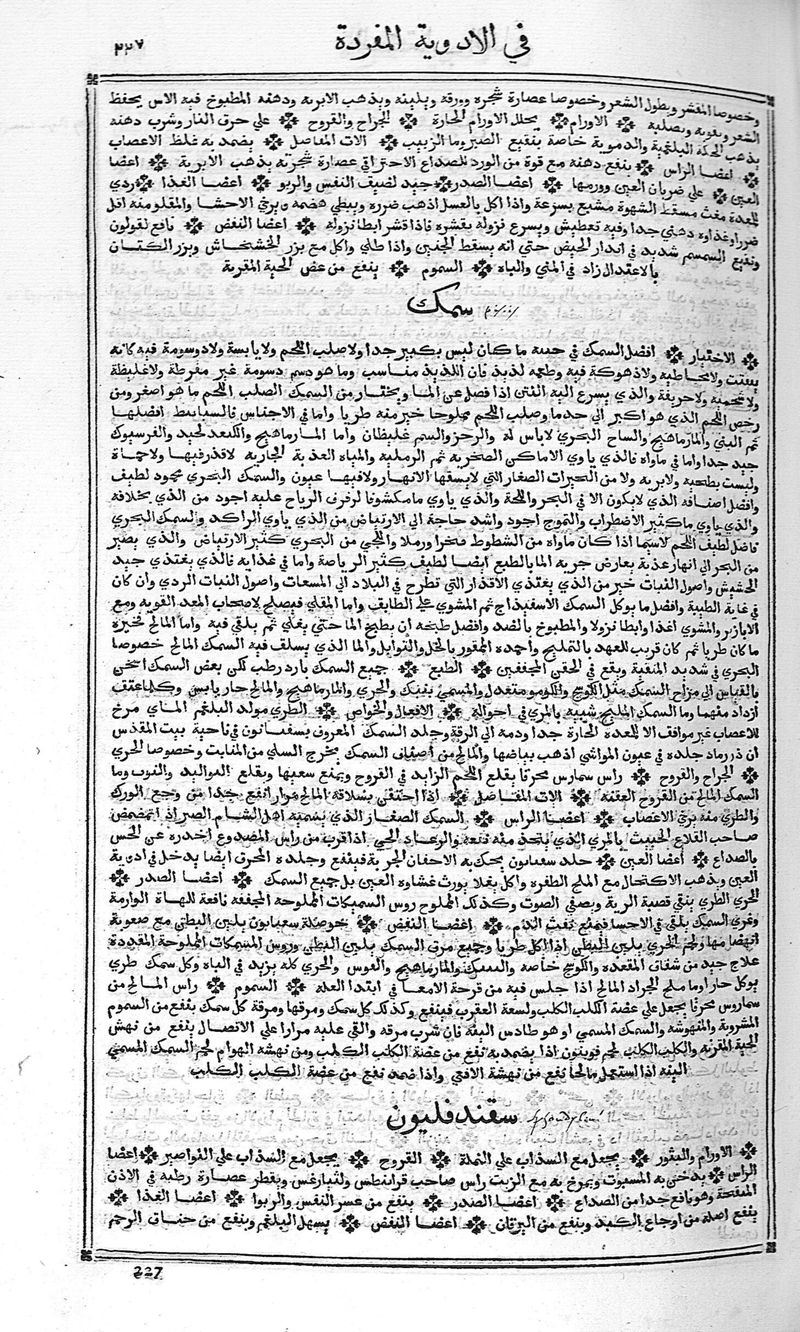 في الادوية المفردة ٢٢٧
وخصوصا المقشر ويطول الشعر وخصوصا عصارة شجره وورقه ويلينه ويذهب الابرية ودهنه المطبوخ فيه الاس يحفظ
الشعر ويقويه ويصلبه الاورام يحلل الاورام الحارة الجراح والقروح علي حرق النار وشرب دهنه
يذهب الحكة البلغمية والدموية خاصة بنقيع الصبر وما الزبيب الات المفاصل يضمد به غلظ الاعصاب
اعضا الراس ينفع دهنه مع قوة من الورد للصداع الاحتراقي عصارة شجرته يذهب الابرية اعضا
العين علي ضربان العين وورمها اعضا الصدر جيد لضيق النفس والربو اعضا الغذا ردي
للمعدة مغث مسقط الشهوة مشبع بسرعة واذا اكل بالعسل اذهب ضرره ويبطي هضمه ويرخي الاحشا والمقلو منه اقل
ضررا وغذاوه دهني جدا وفيه تعطيش ويسرع نزوله بقشره فاذا قشر ابطا نزوله اعضا النفض نافع لقولون
ونقيع السمسم شديد في ادرار الحيض حتي انه يسقط الجنين واذا طلي واكل مع بزر الخشخاش وبزر الكتان
بالاعتدال زاد في المني والباه السموم ينفع من عض الحية المقرنة
سمك
الاختيار افضل السمك في جثته ما كان ليس بكبير جدا ولا صلب اللحم ولا يابسة ولا دسومة فيه كانه
يتفتت ولا مخاطية ولا ذهوكة فيه وطعمه لذيذ فان اللذيذ مناسب وما هو دسم دسومة غير مفرطة ولا غليظة
ولا شحمية ولا حريفة والذي يسرع اليه النتن اذا فصل عن الما ويختار من السمك الصلب اللحم ما هو اصغر ومن
رخص اللحم الذي هو اكبر الي حد ما وصلب اللحم مملوحا خير منه طريا واما في الاجناس فالسبابيط افضلها
ثم البني والمارماهيج والساح البحري لاباس له والرجز والسم غليظان واما المارماهيج والكنعد لجيد والفرسيوك
جيد جدا واما في ماواه فالذي ياوي الاماكن الصخريه ثم الرمليه والمياه العذبة الجارية لا قذر فيها ولا حماة
وليست بطحيه ولا بريه ولا من البحيرات الصغار التي لا يسقها الانهار ولا فيها عيون والسمك البحري محمود لطيف
وافضل اصنافه الذي لا يكون الا في البحر واللجة والذي ياوي ما مكشوفا لرفرف الرياح عليه اجود من الذي بخلافه
والذي ياوي ما كثير الاضطراب والتموج اجود واشد حاجة الي الارتياض من الذي ياوي الراكد والسمك البحري
فاضل لطيف اللحم لا سيما اذا كان ماواه من الشطوط صخرا ورملا واللجي من البحري كثير الارتياض والذي يصير
من البحر الي انهار عذبة يعارض جرية الما بالطبع ايضا لطيف كثير الرياضة واما في غذايه فالذي يغتذي جيد
الحشيش واصول النبات خير من الذي يغتذي الاقذار التي تطرح في البلاد الي المسعات واصول النبات الردي وان كان
في غاية الطيبة وافضل ما يوكل السمك الاسفيذاج ثم المشوي علي الطابق واما المقلي فيصلح لاصحاب المعد القويه ومع
الابازير والمشوي اغذا وابطا نزولا والمطبوخ بالضد وافضل طبخه ان يطبخ الما حتي يغلي ثم يلقي فيه واما المالح فخيره
ما كان طريا ثم كان قريب العهد بالتمليح واحمده الممقور بالخل والتوابل والما الذي يسلق فيه السمك المالح خصوصا
البحري في شديد المنقية ويقع في الحقن المجففين الطبع جميع السمك بارد رطب لكن بعض السمك اسخن
بالقياس الي مزاج السمك مثل الكوسج والكومو معتدل والمسمي بفنك والجري والمارماهيج والمالح حار يابس وكلما عتق
ازداد منهما وما السمك المليح شبيه بالمري في احواله الافعال والخواص الطري مولد البلغم الماي مرخ
للاعصاب غير موافق الا للمعدة الحارة جدا ودمه الي الرقة وجلد السمك المعروف بسفنانون في ناحية بيت المقدس
ان ذر رماد جلده في عيون المواشي اذهب بياضها والمالح من اصناف السمك يخرج السلي من المنابت وخصوصا الجري
الجراح والقروح راس سمارس محرقا يقلع اللحم الزايد في القروح ويمنع سعيها ويقلع الثواليد والتوت وما
السمك المالح من القروح العفنه الات المفاصل اذا احتقن بسلاقة المالح مرارا نفع جدا من وجع الورك
والطري منه يرخي الاعصاب اعضا الراس السمك الصغار الذي يسميه اهل الشام الصير اذا تمضمض
صاحب القلاع الخبيث بالمري الذي يتخذ منه نفعه والرعاد الحي اذا قرب من راس المصدوع اخدره عن الحس
بالصداع اعضا العين جلد سفانون يحك به الاجفان الجربة فينفع وجلده المحرق ايضا يدخل في ادوية
العين ويذهب الاكتحال مع الملح الظفرة واكل يورث غشاوة العين بل جميع السمك اعضا الصدر
الجري الطري ينقي قصبة الرية ويصفي الصوت وكذلك المملوح روس السميكات المملوحة المجففة نافعة للهاة الوارمة
وغري السمك يلقي في الاحسا فينفع نفث الدم اعضا النفض حوصلة سفابون يلين البطن مع صعوبة
انهضامها ولحم الجري يلين البطن اذا اكل طريا وجميع مرق السمك يلين البطن وروس السمكات المملوحة المقددة
علاج جيد من شقاق المقعدة والكوسج خاصة والسمك والمارماهيج والعوس والجري كله يزيد في الباه وكل سمك طري
يوكل حارا وما ملح الجراد المالح اذا جلس فيه من قرحة الامعا في ابتدا العله السموم راس المالح من
سماروس محرقا يجعل علي عضة الكلب الكلب ولسعة العقرب فينفع وكذلك كل سمك ومرقها ومرقة كل سمك ينفع من السموم
المشروبة والمنهوشه والسمك المسمي او هو طادس البته فان شرب مرقه والقي عليه مرارا علي الاتصال ينفع من نهش
الحية المقرنه والكلب الكلب لحم قوينون اذا يضمد به نفع من عضة الكلب الكلب ومن نهشة الهوام لحم السمك المسمي
البته اذا استعمل مالحا نفع من نهشة الافعي واذا ضمد نفع من عضة الكلب الكلب
سقندفليون
الاورام والبثور يجعل مع السذاب علي النملة القروح يجعل مع السذاب علي النواصير اعضا
الراس يدخن به المسبوت ويمرخ به مع الزيت راس صاحب قرانيطس وليثارغس ويقطر عصارة رطبه في الاذن
المنفتحة وهو نافع جدا من الصداع اعضا الصدر ينفع من عسر النفس والربوا اعضا الغذا
ينفع اصله من اوجاع الكبد وينفع من اليرقان اعضا النفض يسهل البلغم وينفع من خناق الرحم
227